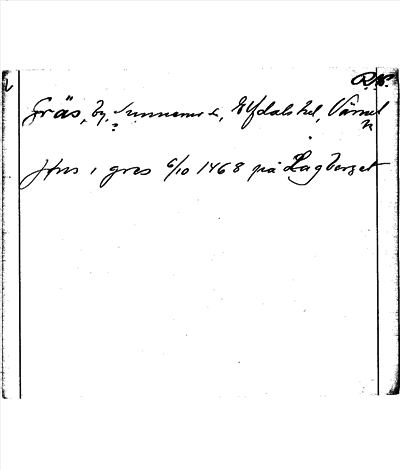 Gräs, by, Sunnemo s., Elfdals hd, Värml
Jöns i gres 6/10 1468 på Lagberget